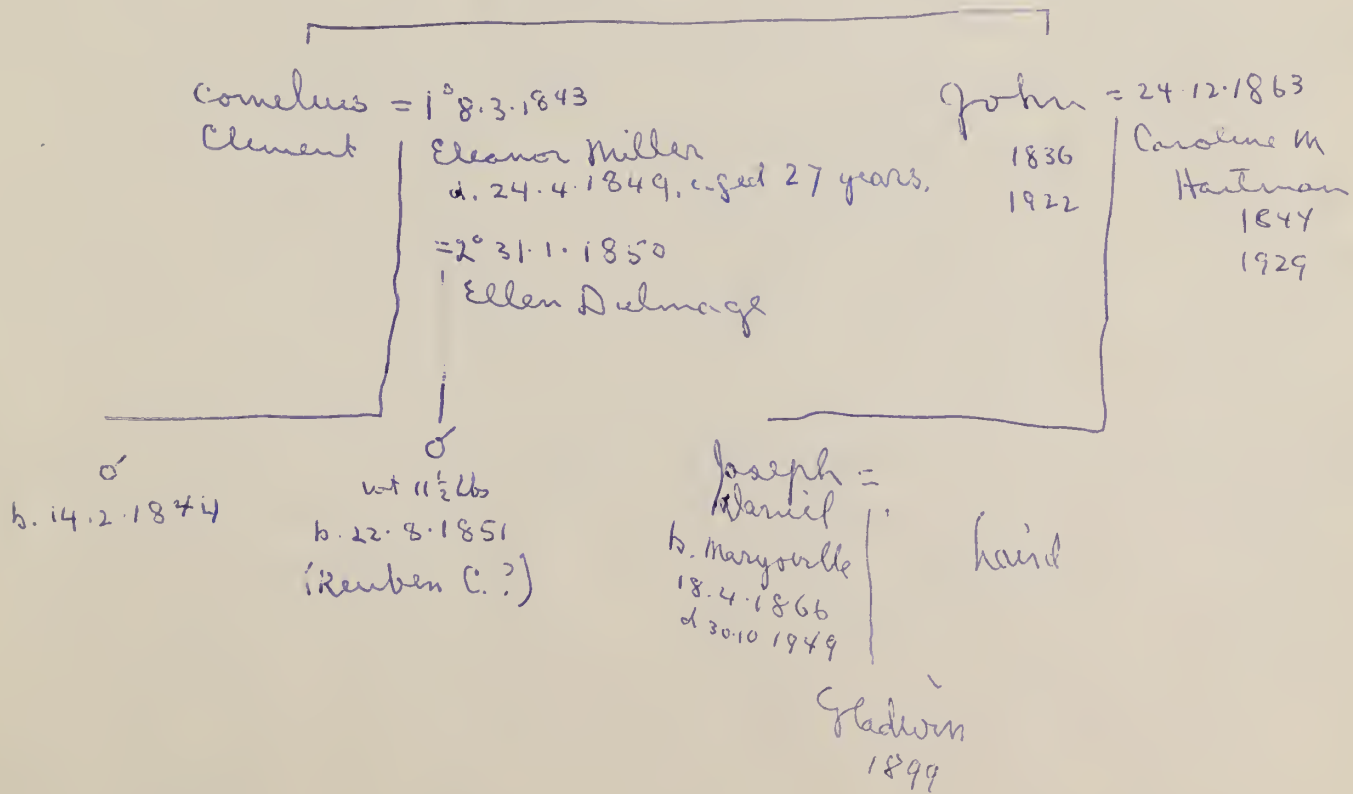 Cornelius = 1° 8.3.1843
Clement
Eleanor Miller
d. 24.4.1849, aged 27 years.
=2° 31.1.1850
Ellen Dulmage
John = 24.12.1863
1836
1922
Caroline M
Hartman
1844
1929
♂
b. 14.2.1844
♂
wt 11 1/2 lbs
b. 22.8.1851
(Reuben C.?)
Joseph =
Daniel
b. Marysville
18.4.1866
d 30.10 1949
Gladwin
1899